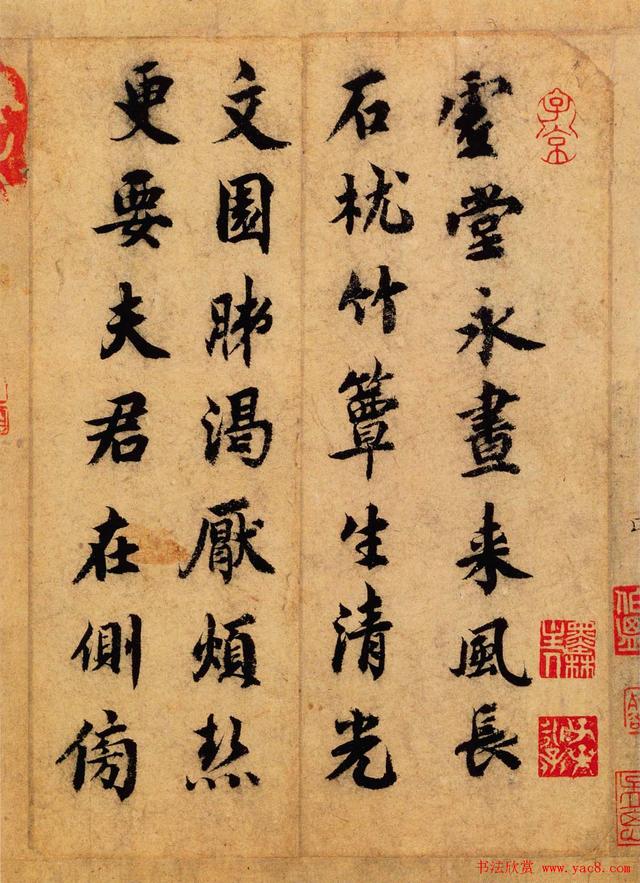 子京
虛堂永晝来風長
石枕竹簟生清光
文園肺渴厭煩熱
更要夫君在側傍
墨林山人
书法欣赏 www.yac8.com